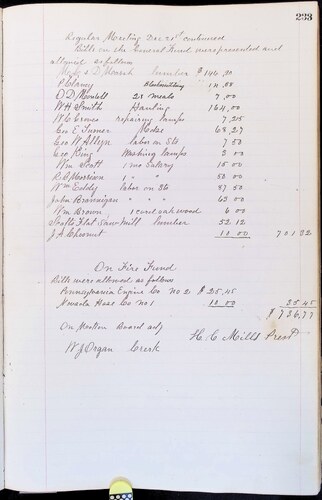 233
Regular Meeting Dec 21st continued
Bills on the General Fund were presented and
allowed as follows
Lumber $146.30
P Clancy 14.88
O D 21 meals 7.00
W H Smith Hauling 164.00
W C Groves repairing lamps 7.25
Geo E Turner Mdse 68.27
Geo W Allyn labor on Sts 7.50
Geo King Washing lamps 2.00
Wm Scott 1 mo Entry 15.00
R S Morrison 1 " " 50.00
Wm Eddy labor on Sts 87.50
John Brannigan " " " 63.00
Wm Brown 1 cord oak wood 6.00
Scotts Flat Saw Mill Lumber 52.12
J A Chesnut 10.00 701.32
On Fire Fund
Bills were allowed as follows
Pennsylvania Engine Co No 2 $25.45
Nevada Hose Co No 1 10.00 35.45
$736.77
On Motion Board adj
H. C. Mills Prest
W J Organ Clerk